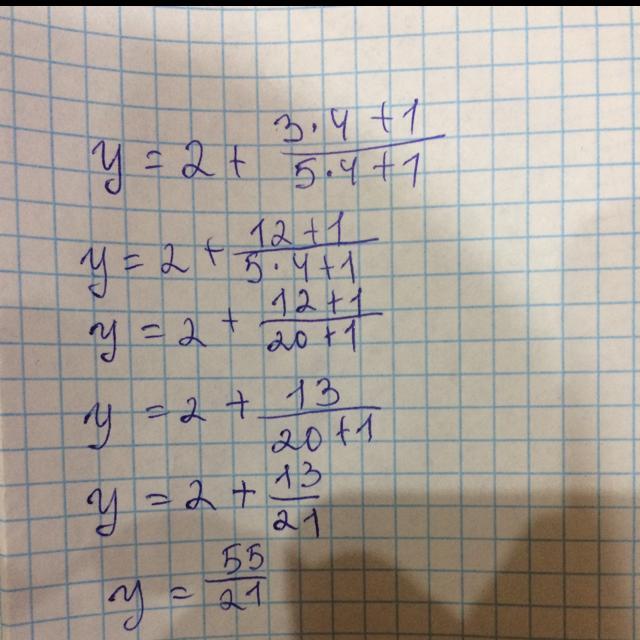 y = 2 + (3·4+1)/(5·4+1)
y = 2 + (12+1)/(5·4+1)
y = 2 + (12+1)/(20+1)
y = 2 + 13/(20+1)
y = 2 + 13/21
y = 55/21